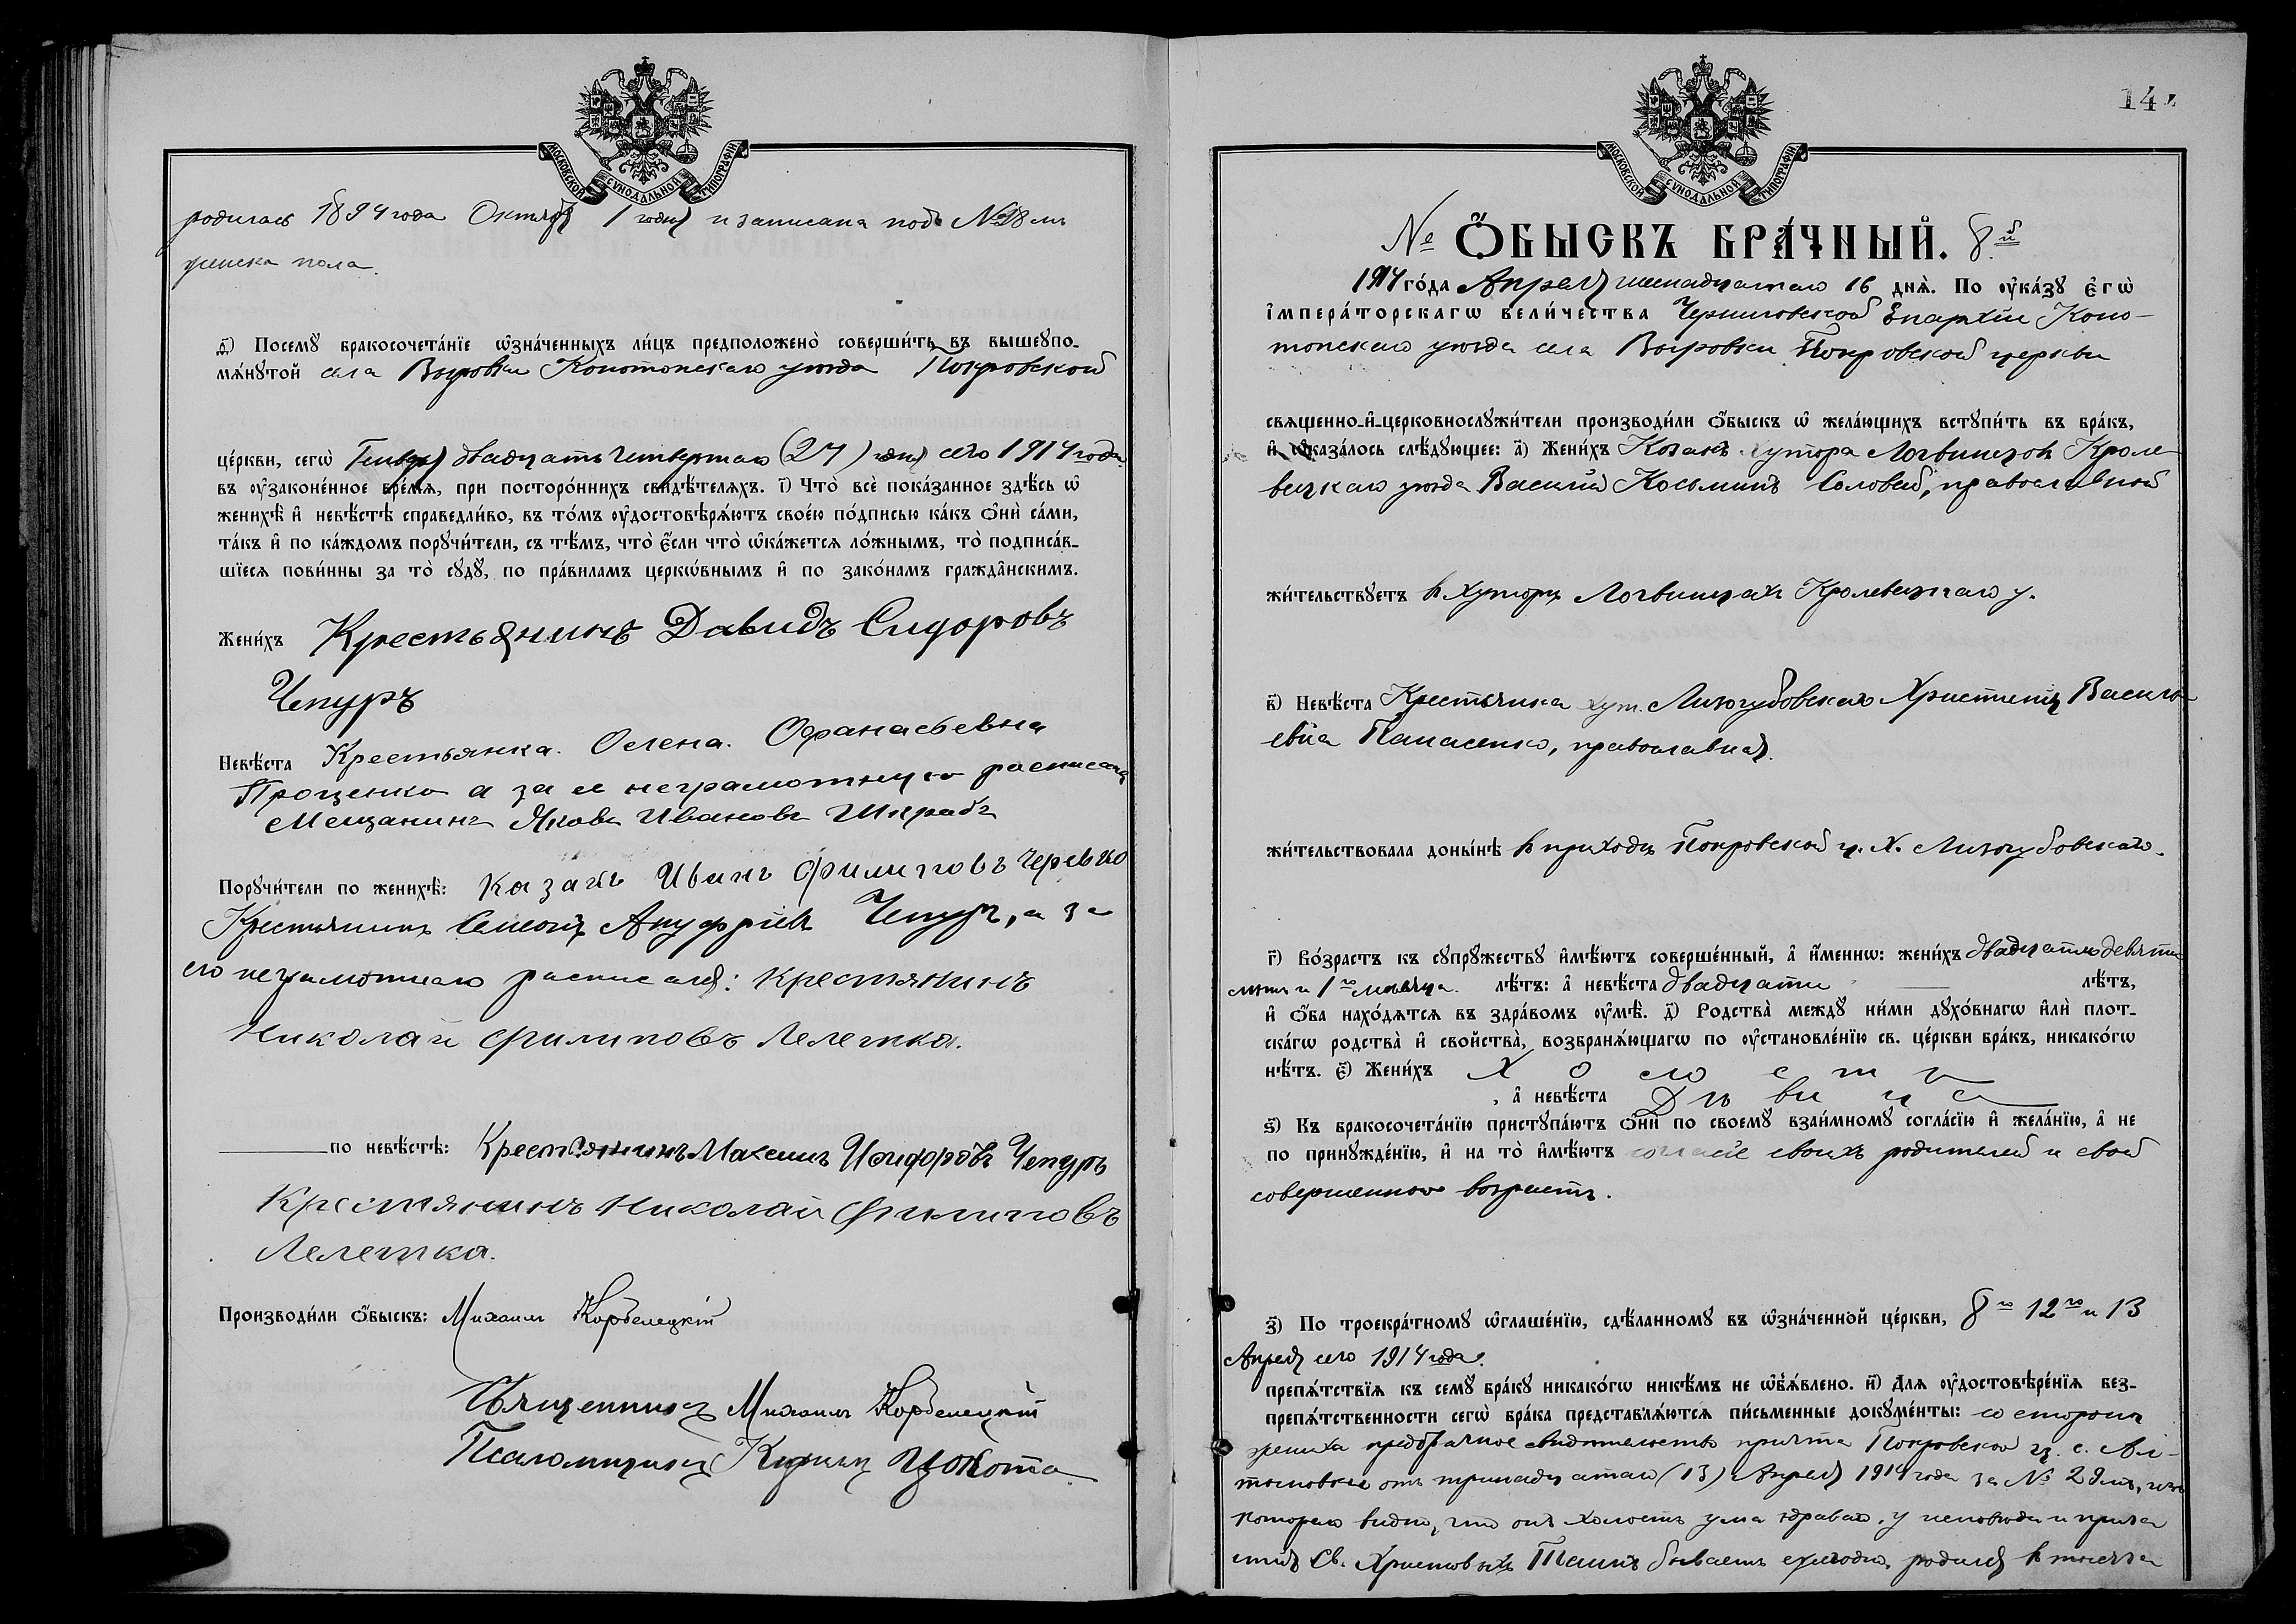 МОСКОВСКОЙ СУНОДАЛЬНОЙ ТИПОГРАФІИ
родилась 1894 года Октября 1 го дня и записана подъ № 28 мъ
женска пола.
д҃) Посемꙋ бракосочета́нїе ѡ҆зна́ченныхъ ли́цъ предположено̀ соверши́ть въ вышеупо-
мѧ́нꙋтой села Вировки Конотопскаго уѣзда Покровской
це́ркви, сегѡ̀ Генваря двадцать четвертаго (24) дня сего 1914 года
въ ᲂу҆законе́нное вре́мѧ, при посторо́ннихъ свидѣ́телѧхъ. і҃) Что̀ всѐ пока́занное здѣ́сь ѡ҆
женихѣ̀ и҆ невѣ́стѣ справедли́во, въ то́мъ ᲂу҆достовѣрѧ́ютъ свое́ю по́дписью ка́къ ѻ҆нѝ са́ми,
та́къ и҆ по ка́ждомъ порꙋчи́тели, съ тѣ́мъ, что̀ є҆́сли что̀ ѡ҆ка́жетсѧ ло́жнымъ, то̀ подписа́в-
шїесѧ пови́нны за то̀ сꙋдꙋ̀, по пра́виламъ церкѡ́внымъ и҆ по зако́намъ гражда̂нскимъ.
Жени́хъ Крестьянинъ Давидъ Сидоровъ
Чепуръ
Невѣ́ста Крестьянка. Олена. Офанасьевна
Проценко а за ее неграмотную росписался
Мещанинъ Яковъ Ивановъ Шкрабъ
Порꙋчи́тели по женихѣ̀: Казакъ Иванъ Филиповъ Черевко
Крестьянинъ Семенъ Ануфріевъ Чепуръ, а за
его неграмотнаго росписался: крестянинъ
Николай Филиповъ Лелетка.
по невѣ́стѣ: Крестьянинъ Максимъ Исидоровъ Чепуръ
Крестянинъ Николай Филиповъ
Лелетка.
Производи́ли ѻ҆́быскъ: Михаилъ Корбелецкій
Священникъ Михаилъ Корбелецкій
Псаломщикъ Кирилъ Цокота
МОСКОВСКОЙ СУНОДАЛЬНОЙ ТИПОГРАФІИ
14
№ Ѻ҆́БЫСКЪ БРА́ЧНЫЙ. 8 й
1914 го́да Апреля шестнадцатаго 16 днѧ̀. По ᲂу҆ка́зꙋ є҆гѡ̀
і҆мпера́торскагѡ вели́чества Черниговской Епархіи Коно-
топскаго уѣзда села Вировки Покровской церкви
свѧщенно-и҆-церковнослꙋжи́тели производи́ли ѻ҆́быскъ ѡ҆ жела́ющихъ встꙋпи́ть въ бра́къ,
и҆ ѡ҆каза́лось слѣ́дꙋющее: а҃) Жени́хъ Козакъ хутора Логвинзовъ Кроле-
вецкаго уѣзда Василій Косьминъ Соловей, православный
жи́тельствꙋетъ въ хуторѣ Логвинзахъ Кролевецкаго у.
в҃) Невѣ́ста Крестьянка хут. Лизогубовскаго Христина Василь-
евна Панасенко, православная.
жи́тельствовала доны́нѣ въ приходѣ Покровской ц. х. Лизогубовскаго.
г҃) Во́зрастъ къ сꙋпрꙋ́жествꙋ и҆мѣ́ютъ соверше́нный, а҆ и҆́меннѡ: жени́хъ двадцатидевяти
лѣтъ и 1 го мѣсяца. лѣ́тъ: а҆ невѣ́ста двадцати лѣ́тъ,
и҆ ѻ҆́ба нахо́дѧтсѧ въ здра́вомъ ᲂу҆мѣ̀. д҃) Родства̀ междꙋ̀ ни́ми дꙋхо́внагѡ и҆лѝ плот-
ска́гѡ родства̀ и҆ сво́йства̀, возбранѧ́ющагѡ по ᲂу҆становле́нїю св. це́ркви бра́къ, никако́гѡ
нѣ́тъ. є҃) Жени́хъ Холостъ
, а҆ невѣ́ста Дѣвица
ѕ҃) Къ бракосочета́нїю пристꙋпа́ютъ ѻ҆нѝ по своемꙋ̀ взаи́мномꙋ согла́сїю и҆ жела́нїю, а҆ не
по принꙋжде́нїю, и҆ на то̀ и҆мѣ́ютъ согласіе своихъ родителей и свой
совершенной возрастъ.
з҃) По троекра́тномꙋ ѡ҆глаше́нїю, сдѣ́ланномꙋ въ ѡ҆зна́ченной це́ркви, 8 го 12 го и 13
Апреля сего 1914 года.
препѧ́тствїѧ къ семꙋ̀ бра́кꙋ никако́гѡ никѣ́мъ не ѡ҆б̾ѧ́влено. и҃) Длѧ ᲂу҆достовѣре́нїѧ без-
препѧ́тственности сегѡ̀ бра́ка представлѧ́ютсѧ пи́сьменные докꙋме́нты: со стороны
жениха предбрачное свидѣтельство причта Покровской ц. с. Ал-
тыновки отъ тринадцатаго (13) Апреля 1914 года за № 29 мъ, изъ
котораго видно, что онъ холостъ ума здраваго, у исповѣди и прича
стія Св. Христовыхъ Таинъ бываетъ ежегодно, родился въ тысяча